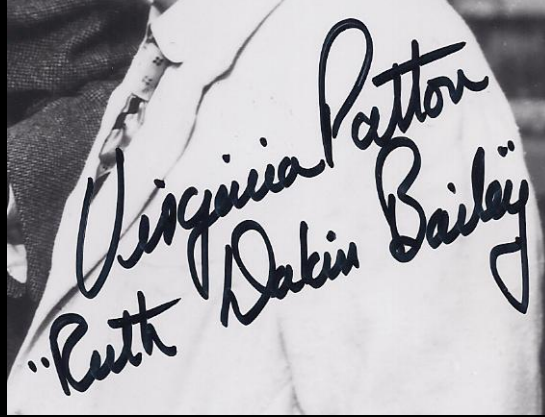 Virginia Patton
"Ruth Dakin Bailey"